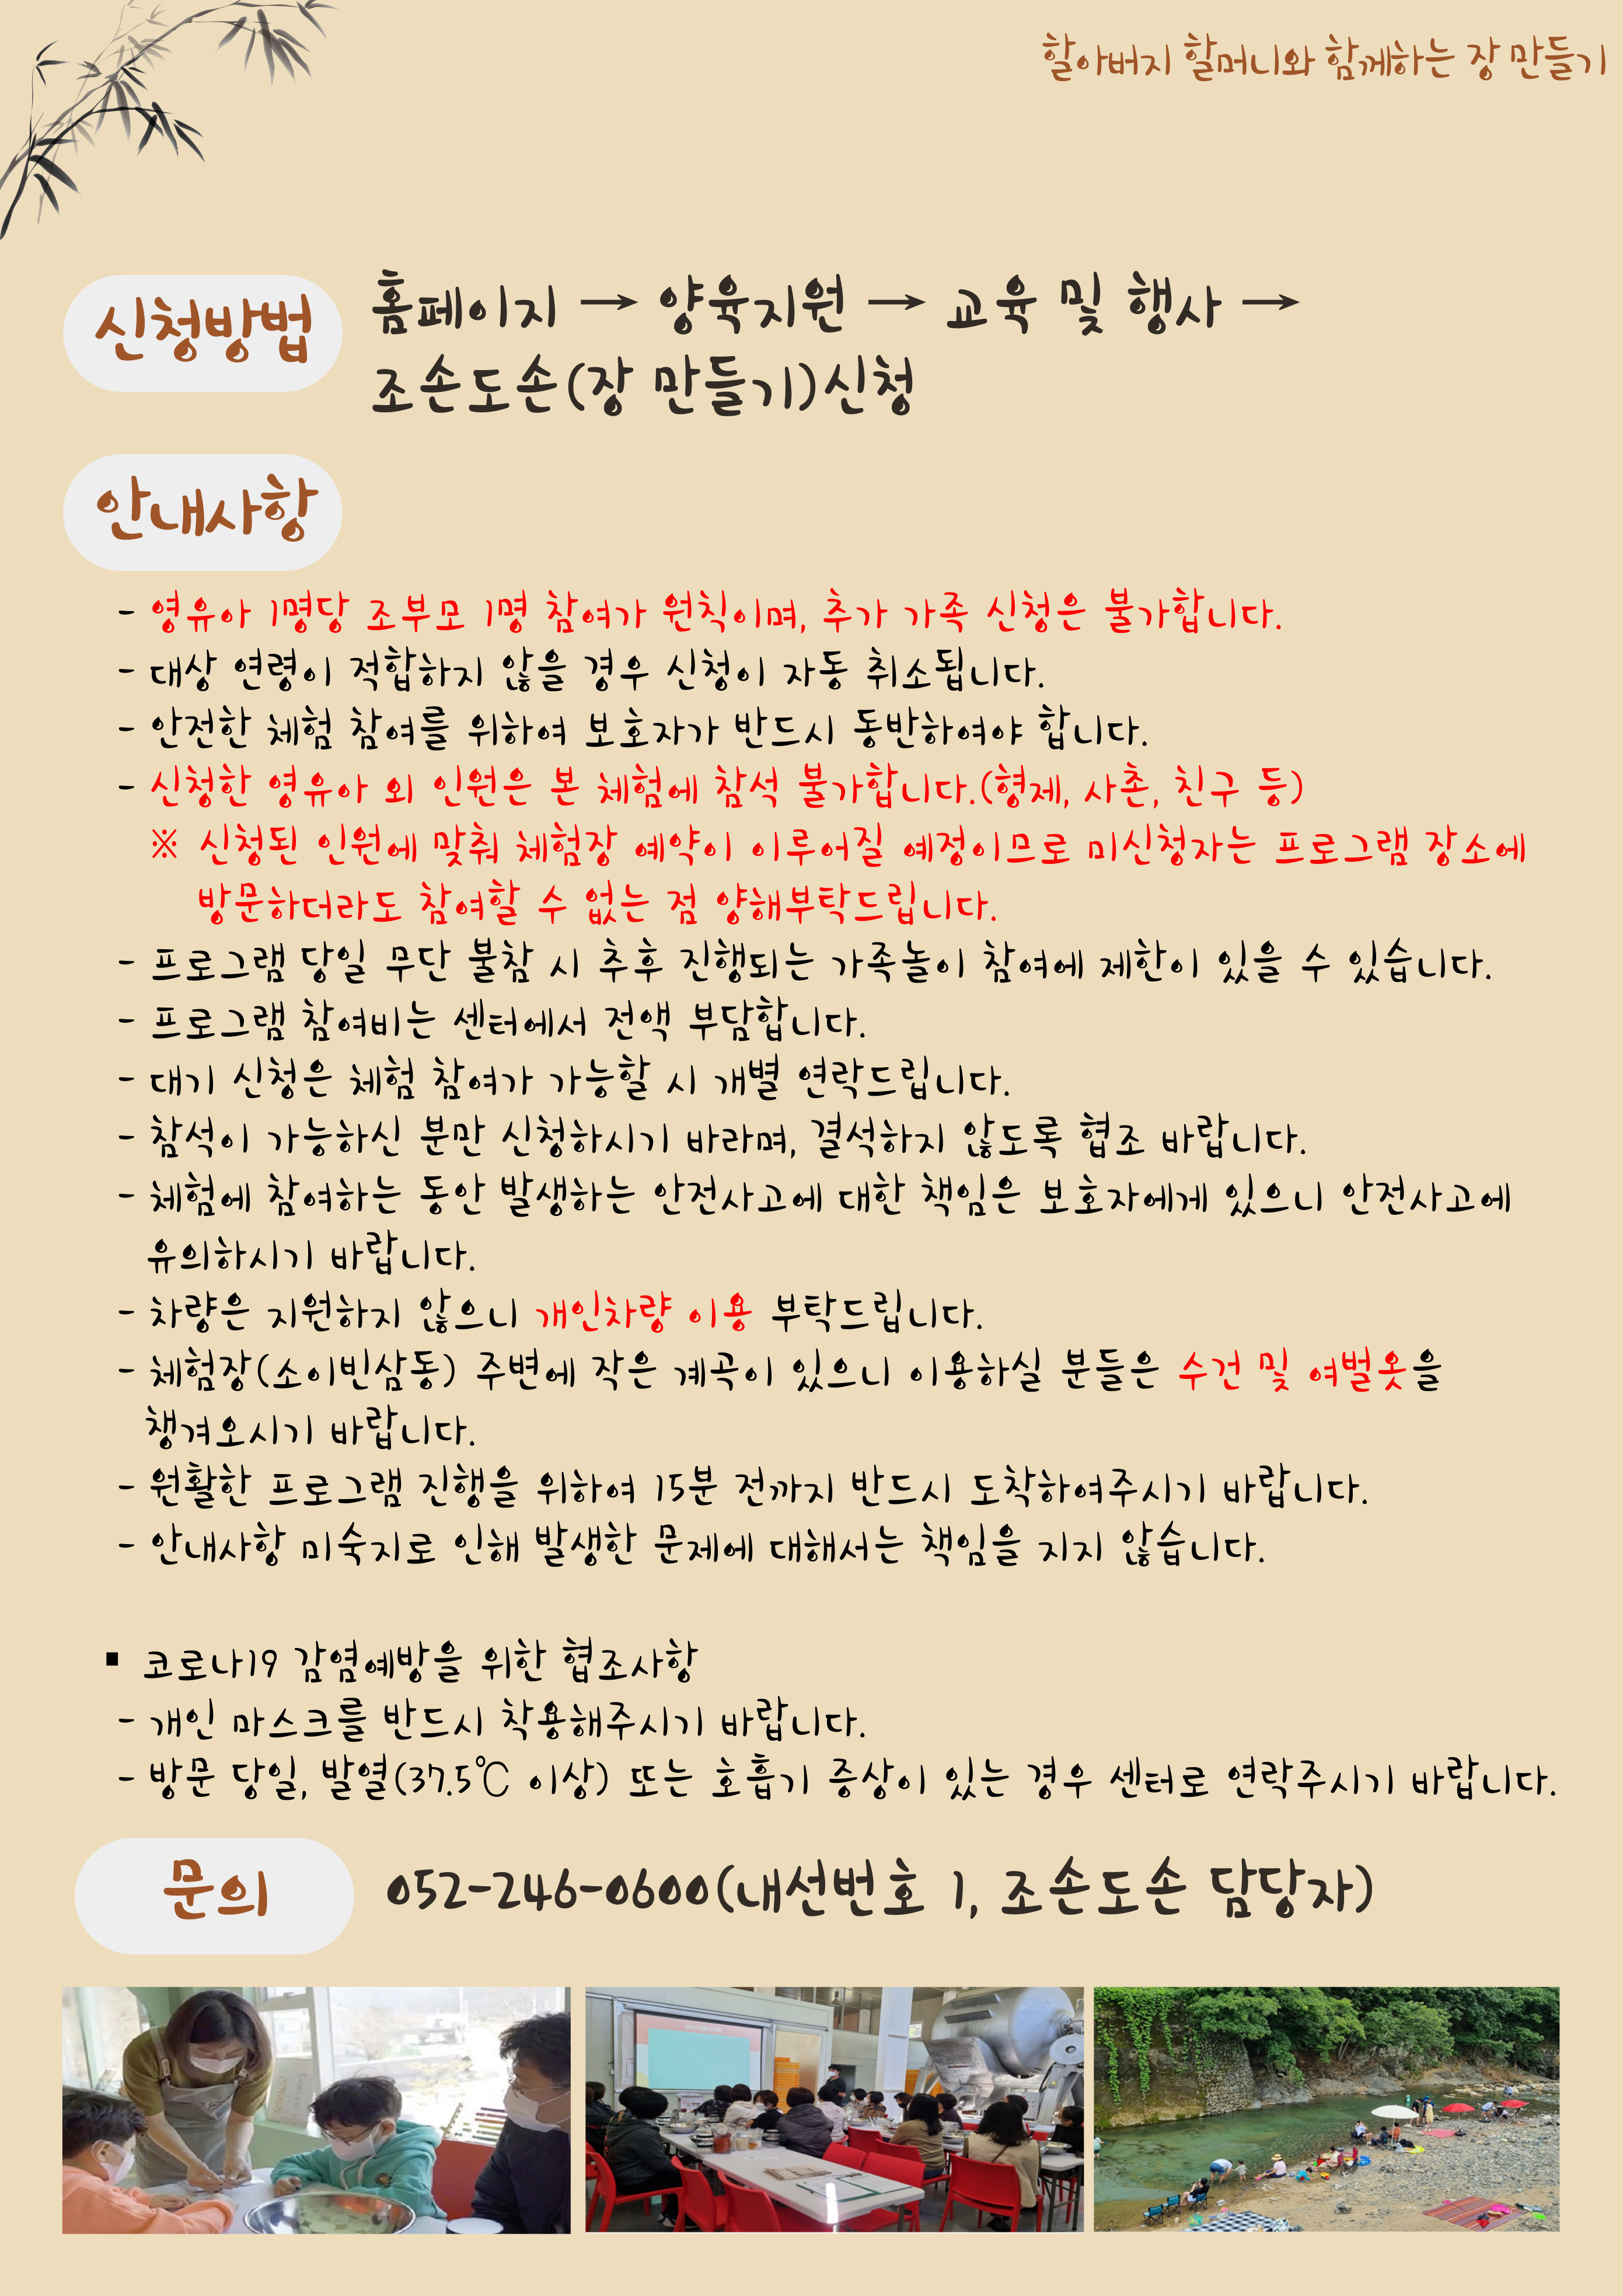 할아버지 할머니와 함께하는 장 만들기
신청방법
홈페이지 → 양육지원 → 교육 및 행사 →
조손도손(장 만들기)신청
안내사항
- 영유아 1명당 조부모 1명 참여가 원칙이며, 추가 가족 신청은 불가합니다.
- 대상 연령이 적합하지 않을 경우 신청이 자동 취소됩니다.
- 안전한 체험 참여를 위하여 보호자가 반드시 동반하여야 합니다.
- 신청한 영유아 외 인원은 본 체험에 참석 불가합니다.(형제, 사촌, 친구 등)
※ 신청된 인원에 맞춰 체험장 예약이 이루어질 예정이므로 미신청자는 프로그램 장소에
방문하더라도 참여할 수 없는 점 양해부탁드립니다.
- 프로그램 당일 무단 불참 시 추후 진행되는 가족놀이 참여에 제한이 있을 수 있습니다.
- 프로그램 참여비는 센터에서 전액 부담합니다.
- 대기 신청은 체험 참여가 가능할 시 개별 연락드립니다.
- 참석이 가능하신 분만 신청하시기 바라며, 결석하지 않도록 협조 바랍니다.
- 체험에 참여하는 동안 발생하는 안전사고에 대한 책임은 보호자에게 있으니 안전사고에
유의하시기 바랍니다.
- 차량은 지원하지 않으니 개인차량 이용 부탁드립니다.
- 체험장(소이빈삼동) 주변에 작은 계곡이 있으니 이용하실 분들은 수건 및 여벌옷을
챙겨오시기 바랍니다.
- 원활한 프로그램 진행을 위하여 15분 전까지 반드시 도착하여주시기 바랍니다.
- 안내사항 미숙지로 인해 발생한 문제에 대해서는 책임을 지지 않습니다.
▪ 코로나19 감염예방을 위한 협조사항
- 개인 마스크를 반드시 착용해주시기 바랍니다.
- 방문 당일, 발열(37.5℃ 이상) 또는 호흡기 증상이 있는 경우 센터로 연락주시기 바랍니다.
문의
052-246-0600(내선번호 1, 조손도손 담당자)